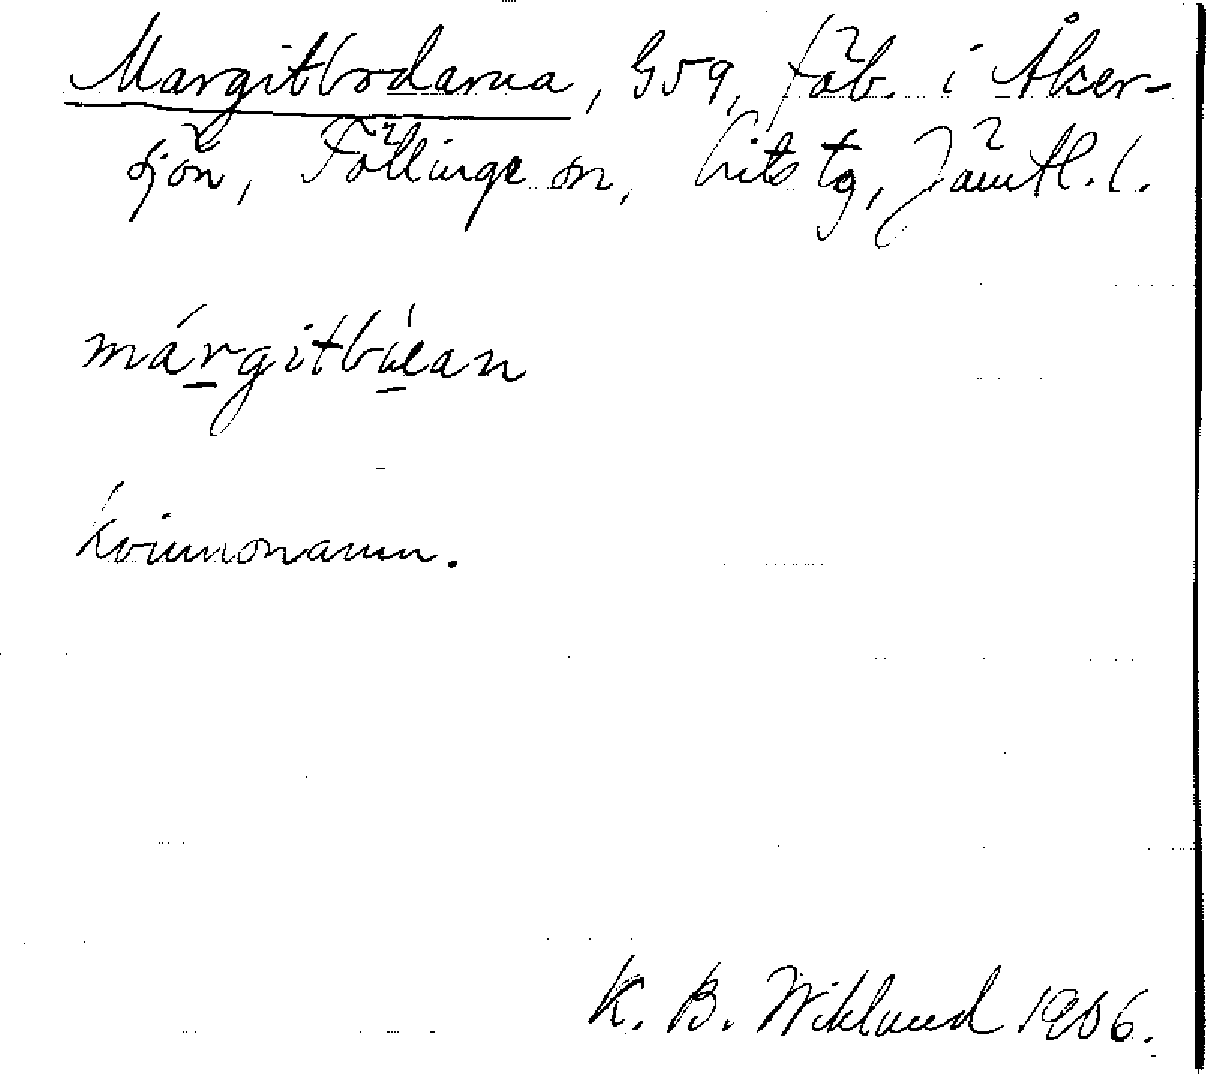 Margitbodarna, G59, fäb. i Åker-
sjön, Föllinge sn, Lits tg, Jämtl. l.
márgitbúean
kvinnonamn.
K. B. Wiklund 1906.